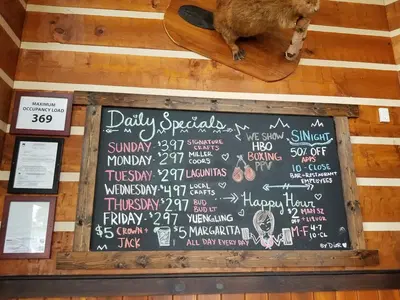 MAXIMUM
OCCUPANCY LOAD
369
Daily Specials
SUNDAY $3.97 SIGNATURE CRAFTS
MONDAY $2.97 MILLER COORS
TUESDAY $2.97 LAGUNITAS
WEDNESDAY $4.97 LOCAL CRAFTS
THURSDAY $2.97 BUD BUD LT
FRIDAY $2.97 YUENGLING
$5 CROWN + JACK
$5 MARGARITA
ALL DAY EVERY DAY
WE SHOW
HBO
BOXING
PPV
SINight
50% OFF
APPS
10 - CLOSE
BAR + RESTAURANT
EMPLOYEES
Happy Hour
$2
M-F 4-7
10-CL